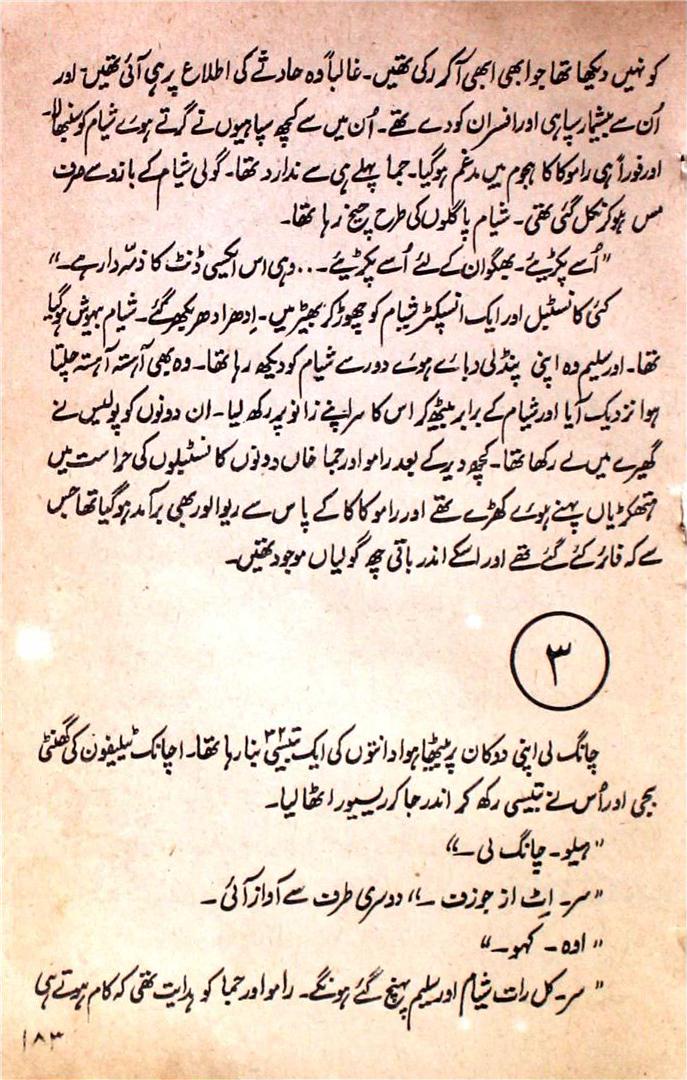 کو نہیں دیکھا تھا جو ابھی ابھی آکر رکی تھیں۔ غالباً وہ حادثے کی اطلاع پر ہی آئی تھیں اور
اُن سے بیشمار سپاہی اور افسران کود ے تھے۔ اُن میں سے کچھ سپاہیوں نے گرتے ہوۓ شیام کو سنبھالا۔
اور فوراً ہی راموکا کا ہجوم میں مدغم ہوگیا۔ جما پہلے ہی سے ندارد تھا۔ گولی شیام کے بازو سے صرف
مس ہوکر نکل گئی تھی۔ شیام پاگلوں کی طرح چیخ رہا تھا۔
"اُسے پکڑیئے۔ بھگوان کے لئے اُسے پکڑیئے۔۔۔ وہی اس ایکسی ڈنٹ کا ذمّہ دار ہے۔"
کئی کانسٹیبل اور ایک انسپکٹر شیام کو چھوڑ کر بھیڑ میں۔ اِدھر اُدھر بکھر گئے۔ شیام بیہوش ہوگیا
تھا۔ اور سلیم وہ اپنی پنڈلی دباۓ ہوۓ دور سے شیام کو دیکھ رہا تھا۔ وہ بھی آہستہ آہستہ چلتا
ہوا نزدیک آیا اور شیام کے برابر بیٹھ کر اس کا سر اپنے زانو پر رکھ لیا۔ ان دونوں کو پولیس نے
گھیرے میں لے رکھا تھا۔ کچھ دیر کے بعد رامو اور جما خاں دونوں کانسٹیلوں کی حراست میں
ہتھکڑیاں پہنے ہوۓ کھڑے تھے اور راموکا کا کے پاس سے ریوالور بھی برآمد ہوگیا تھا جس
سے کہ فائر کئے گئے تھے اور اسکے اندر باقی چھ گولیاں موجود تھیں۔
۳
چانگ لی اپنی دوکان پر بیٹھا ہوا دانتوں کی ایک بتیسی ۳۲ بنا رہا تھا۔ اچانک ٹیلیفون کی گھنٹی
بجی اور اُس نے بتیسی رکھ کر اندر جا کر ریسیور اٹھا لیا۔
"ہیلو۔ چانگ لی۔"
"سر۔ اِٹ از جوزف۔" دوسری طرف سے آواز آئی۔
"اوہ۔ کہو۔"
"سر۔ کل رات شیام اور سلیم پہنچ گئے ہونگے۔ رامو اور جما کو ہدایت تھی کہ کام ہوتے ہی
۱۸۳